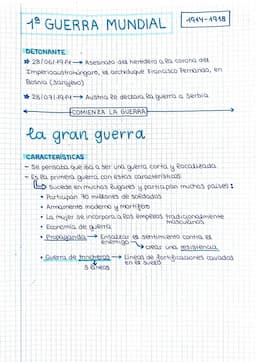 1ª GUERRA MUNDIAL
1914-1918
DETONANTE
* 28/06/1914 → Asesinato del heredero a la corona del
Imperioaustrohúngaro, el archiduque Francisco Fernando, en
Bosnia (Sarajevo)
* 28/07/1914 → Austria le declara la guerra a Serbia
COMIENZA LA GUERRA
la gran guerra
CARACTERÍSTICAS
- Se pensaba que iba a ser una guerra corta y localizada
- Es la primera guerra con estas características
↳ Sucede en muchos lugares y participan muchos países:
• Participan 70 millones de soldados
• Armamento moderno y mortífero
• La mujer se incorpora a los empleos tradicionalmente
masculinos
• Economía de guerra
• Propaganda → Ensalzar el sentimiento contra el
enemigo
↳ crear una resistencia
• Guerra de trincheras → Líneas de fortificaciones cavadas
en el suelo
3 líneas